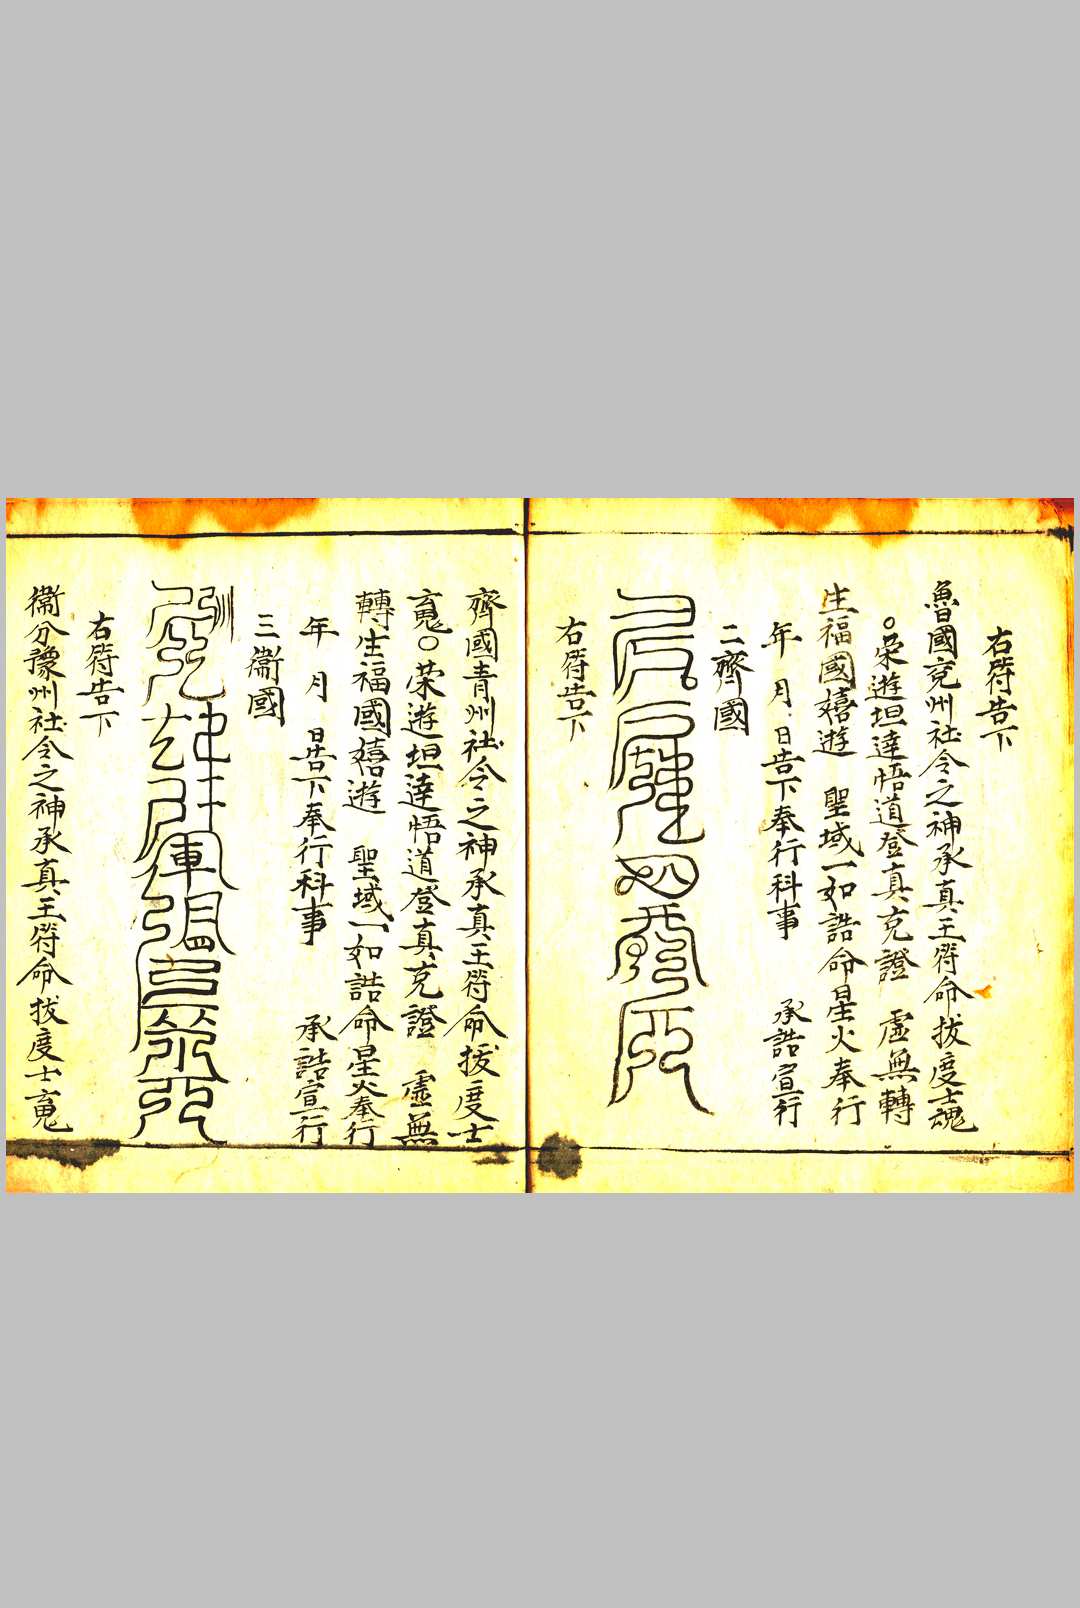 右符告下
魯國兗州社令之神承真王符命拔度士魂
○榮遊坦達悟道登真克證　虛無轉
生福國嬉遊　聖域一如誥命星火奉行
年　月　日告下奉行科事　　承誥宣行
二齊國
右符告下
齊國青州社令之神承真王符命拔度士
䰟○榮遊坦達悟道登真克證　虛無
轉生福國嬉遊　聖域一如誥命星火奉行
年　月　日告下奉行科事　　承誥宣行
三衞國
右符告下
衞分豫州社令之神承真王符命拔度士䰟